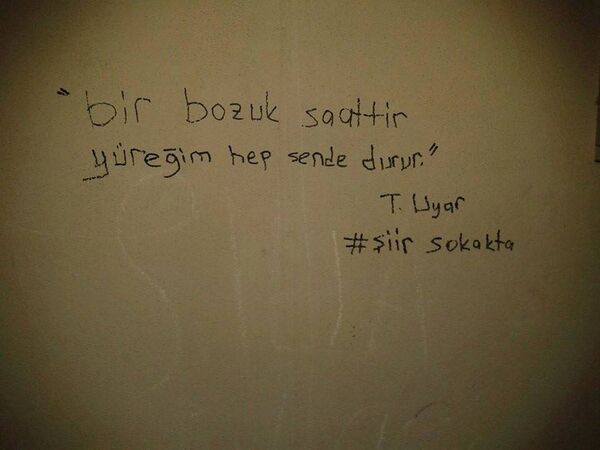 "bir bozuk saattir
yüreğim hep sende durur."
T. Uyar
#şiir sokakta